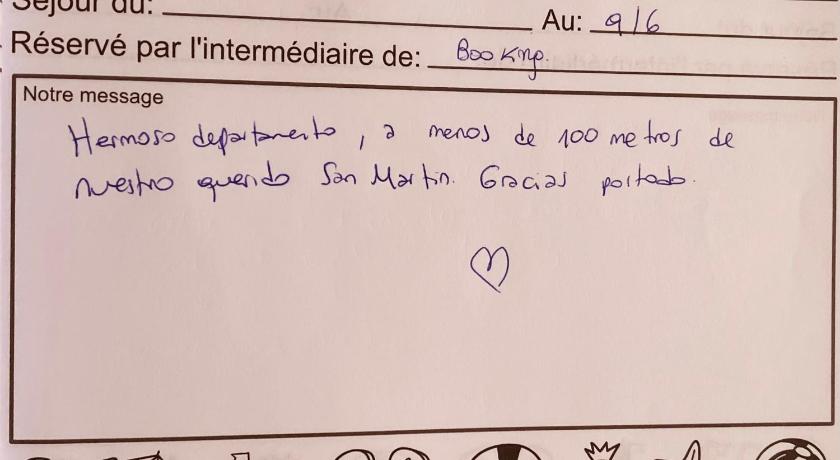 Séjour du: Au: 9/6
Réservé par l'intermédiaire de: Booking.
Notre message
Hermoso departamento, a menos de 100 metros de
nuestro querido San Martin. Gracias por todo.